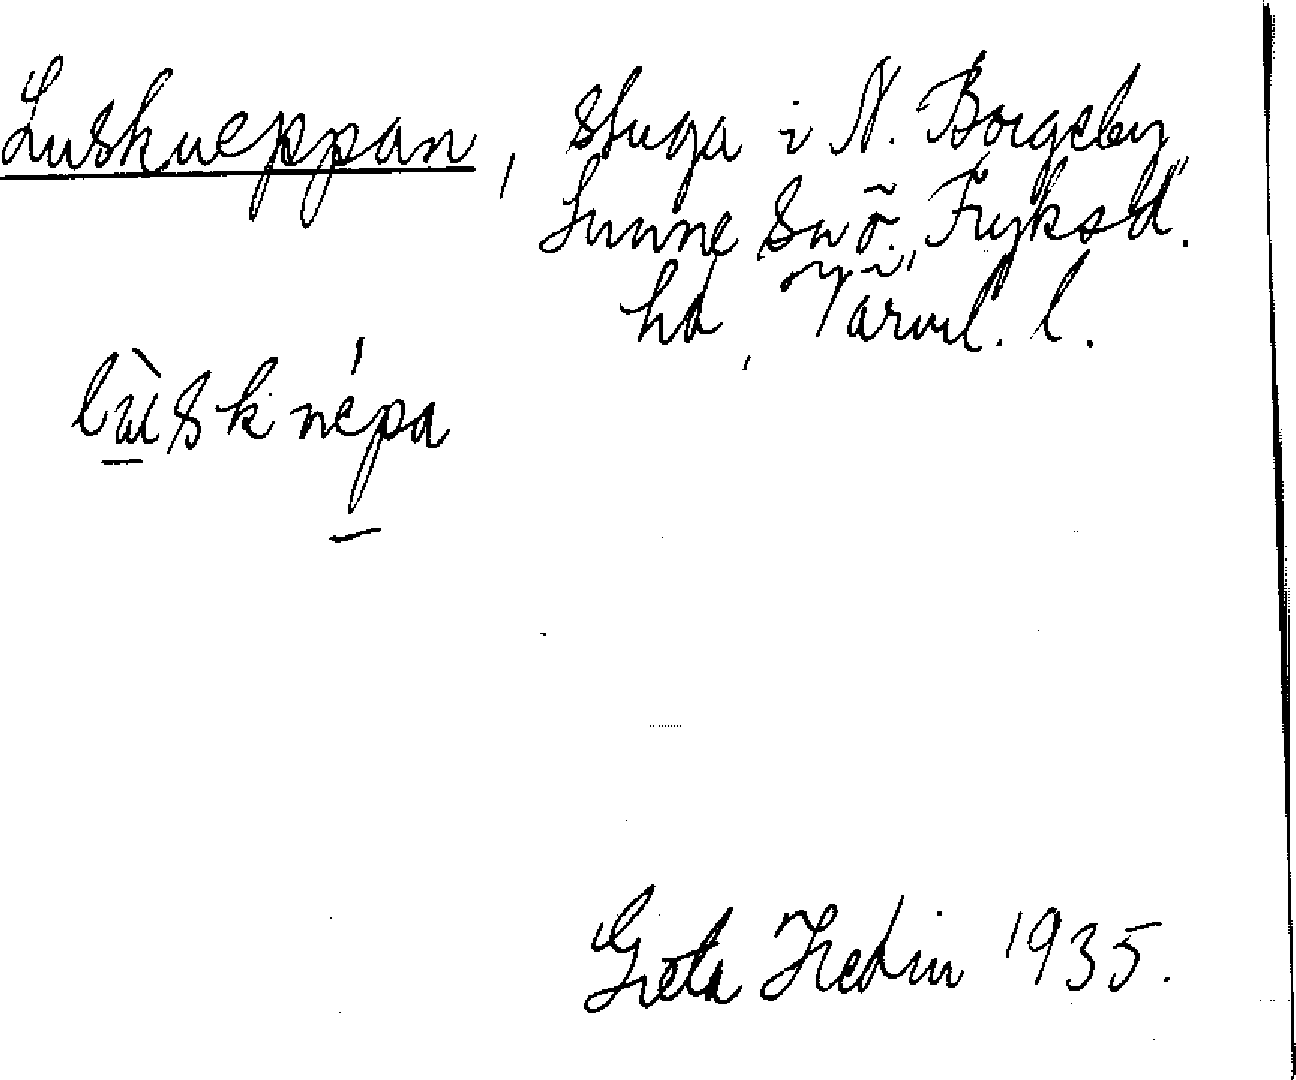 Luskneppan, stuga i N. Borgeby,
Sunne sn, ö. Fryksd.
hd, Värml. l.
lùsknépa
Greta Hedin 1935.